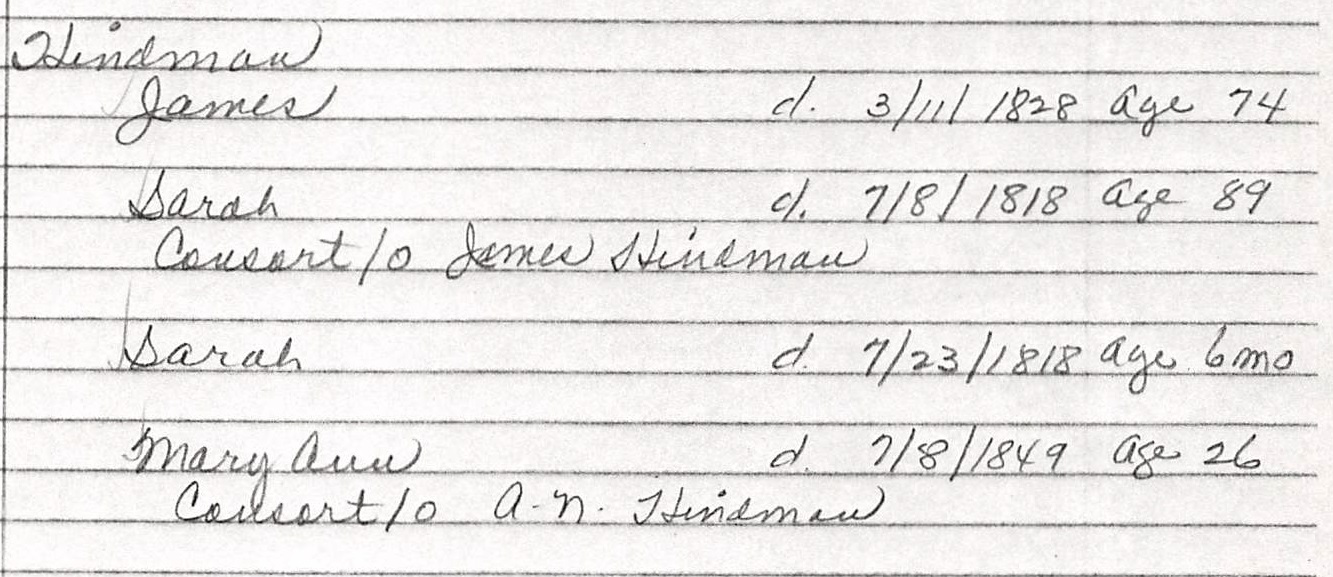 Hindman
James d. 3/11/1828 Age 74
Sarah d. 7/8/1818 Age 89
Consort/o James Hindman
Sarah d. 7/23/1818 Age 6mo
Mary Ann d. 7/8/1849 Age 26
Consort/o A. N. Hindman